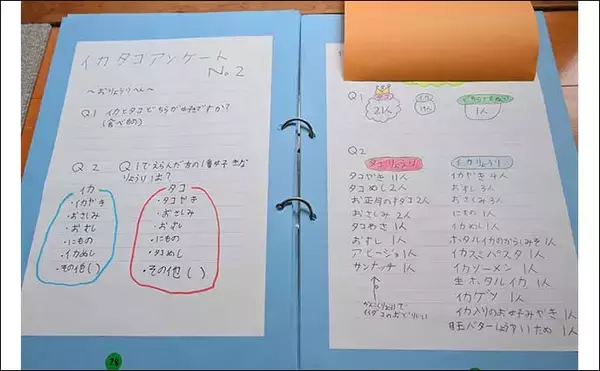 イカタコアンケート
No.2
〜おりょうりへん〜
Q1 イカとタコどちらが好きですか?
(食べもの)
Q2 Q1でえらんだ方の1番好きな
りょうりは?
イカ
・イカやき
・おさしみ
・おすし
・にもの
・イカめし
・その他( )
タコ
・タコやき
・おさしみ
・おすし
・にもの
・タコめし
・その他( )
28
Q1
タコ
21人
イカ
1人
Q2
タコりょうり
タコやき 11人
タコめし 2人
お正月のすダコ 2人
おさしみ 2人
タコやき 1人
おすし 1人
アヒージョ 1人
サンナッチ 1人
かんこくりょうりで
イイダコのおどりぐい
イカりょうり
イカやき 4人
おすし 3人
おさしみ 3人
にもの 1人
イカめし 1人
ホタルイカのからしみそ 1人
イカスミパスタ 1人
イカソーメン 1人
生ホタルイカ 1人
イカゲソ 1人
イカ入りのお好みやき 1人
バターしょうゆいため 1人